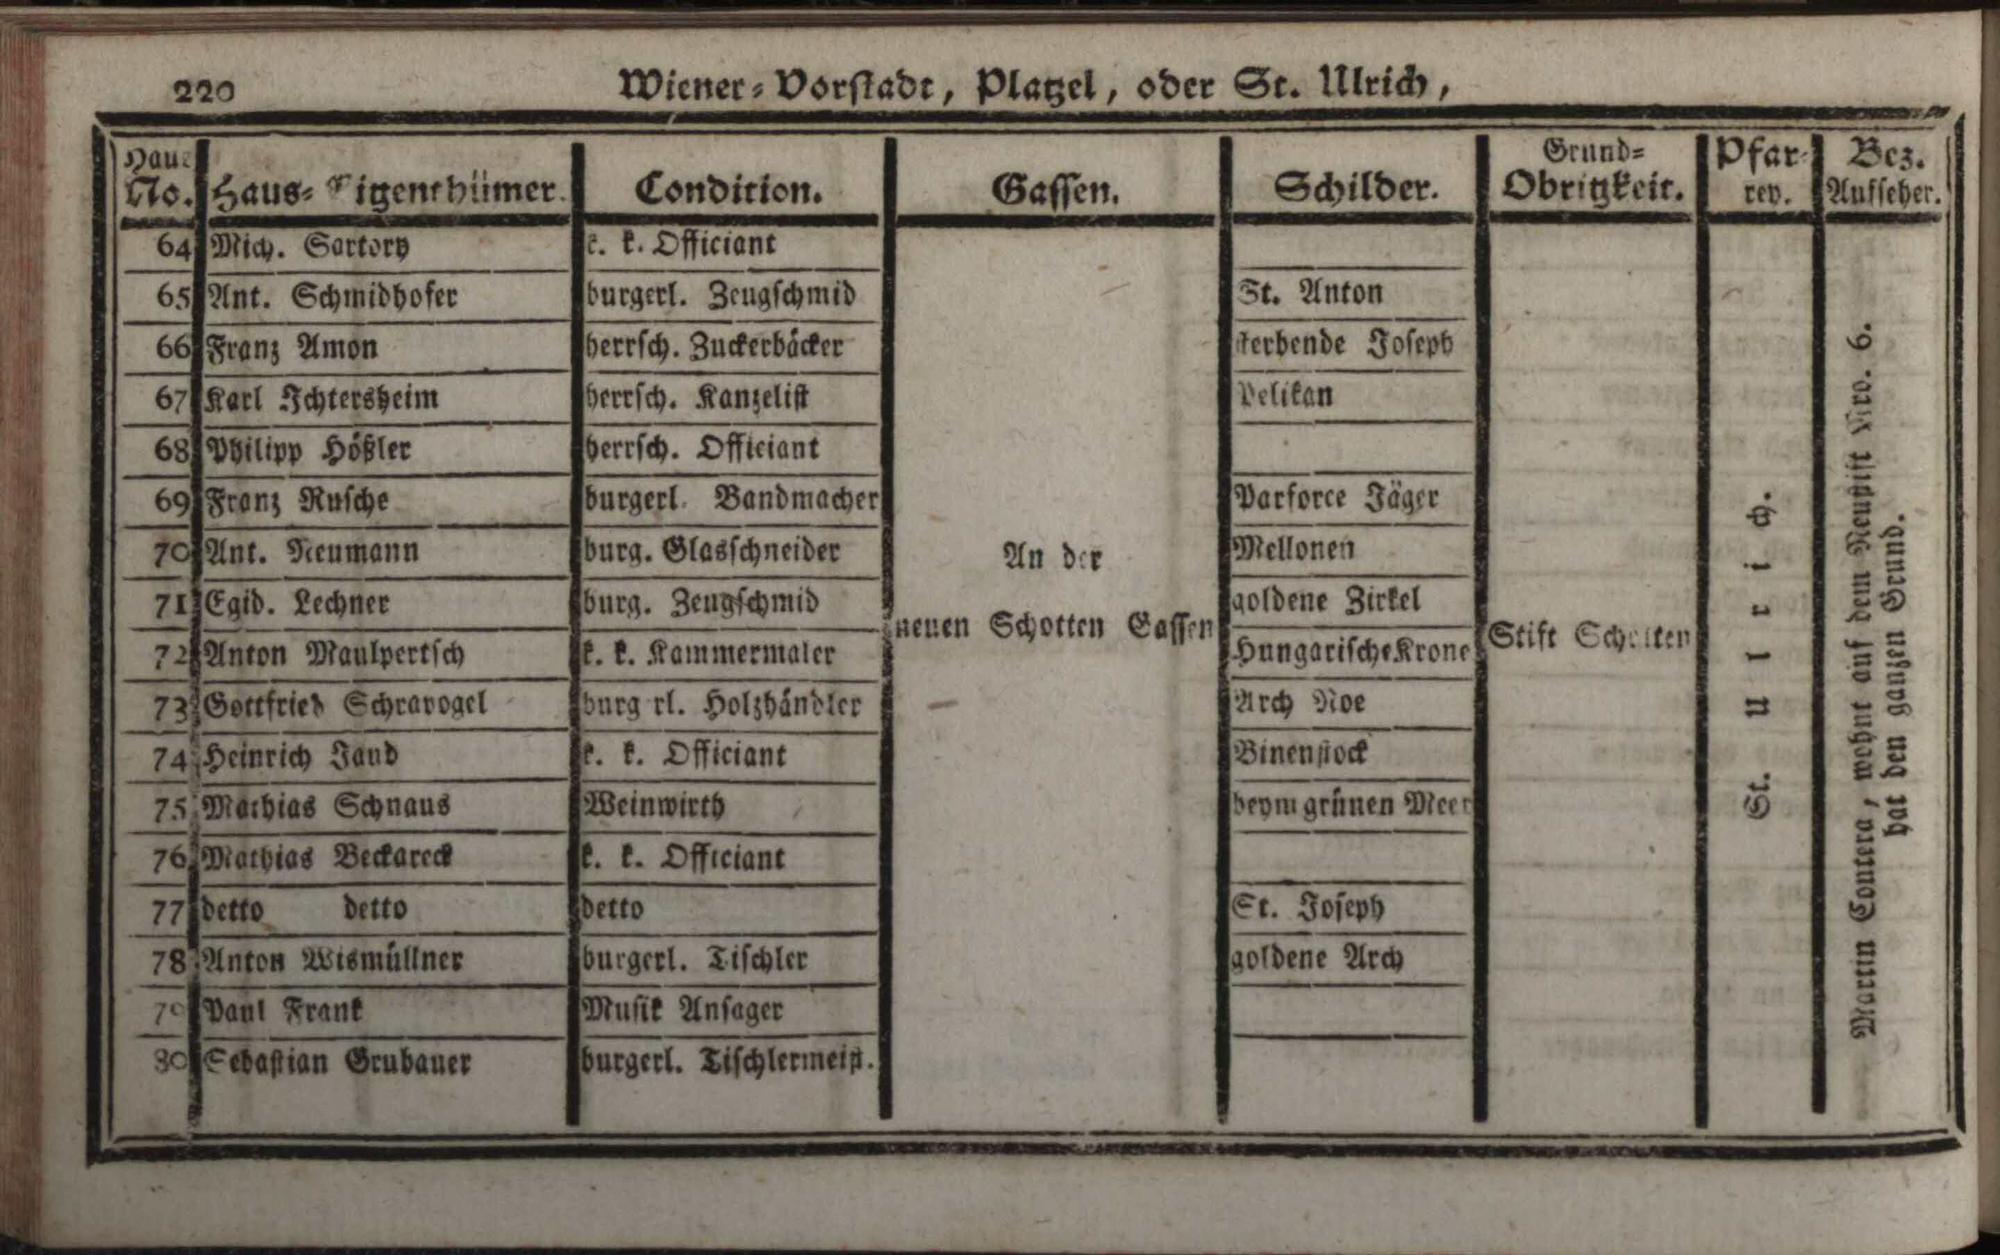 220 Wiener-Vorstadt, Platzel, oder St. Ulrich,
Haus No. Haus-Eigenthümer. Condition. Gassen. Schilder. Grund-Obrigkeit. Pfarrey. Bez. Aufseher.
64 Mich. Sartory k. k. Officiant
65 Ant. Schmidhofer burgerl. Zeugschmid St. Anton
66 Franz Amon herrsch. Zuckerbäcker sterbende Joseph
67 Karl Ichtersheim herrsch. Kanzelist Pelikan
68 Philipp Hößler herrsch. Officiant
69 Franz Rusche burgerl. Bandmacher Parforce Jäger
70 Ant. Neumann burg. Glasschneider Mellonen
71 Egid. Lechner burg. Zeugschmid goldene Zirkel
72 Anton Maulpertsch k. k. Kammermaler Hungarische Krone
73 Gottfried Schravogel burgerl. Holzhändler Arch Noe
74 Heinrich Jaud k. k. Officiant Binenstock
75 Mathias Schnaus Weinwirth beym grünen Meer
76 Mathias Beckareck k. k. Officiant
77 detto detto detto St. Joseph
78 Anton Wismüllner burgerl. Tischler goldene Arch
79 Paul Frank Musik Ansager
80 Sebastian Grubauer burgerl. Tischlermeist.
An der
neuen Schotten Gassen
Stift Schotten
St. Ulrich.
Martin Contera, wohnt auf dem Neustift Nro. 6.
hat den ganzen Grund.